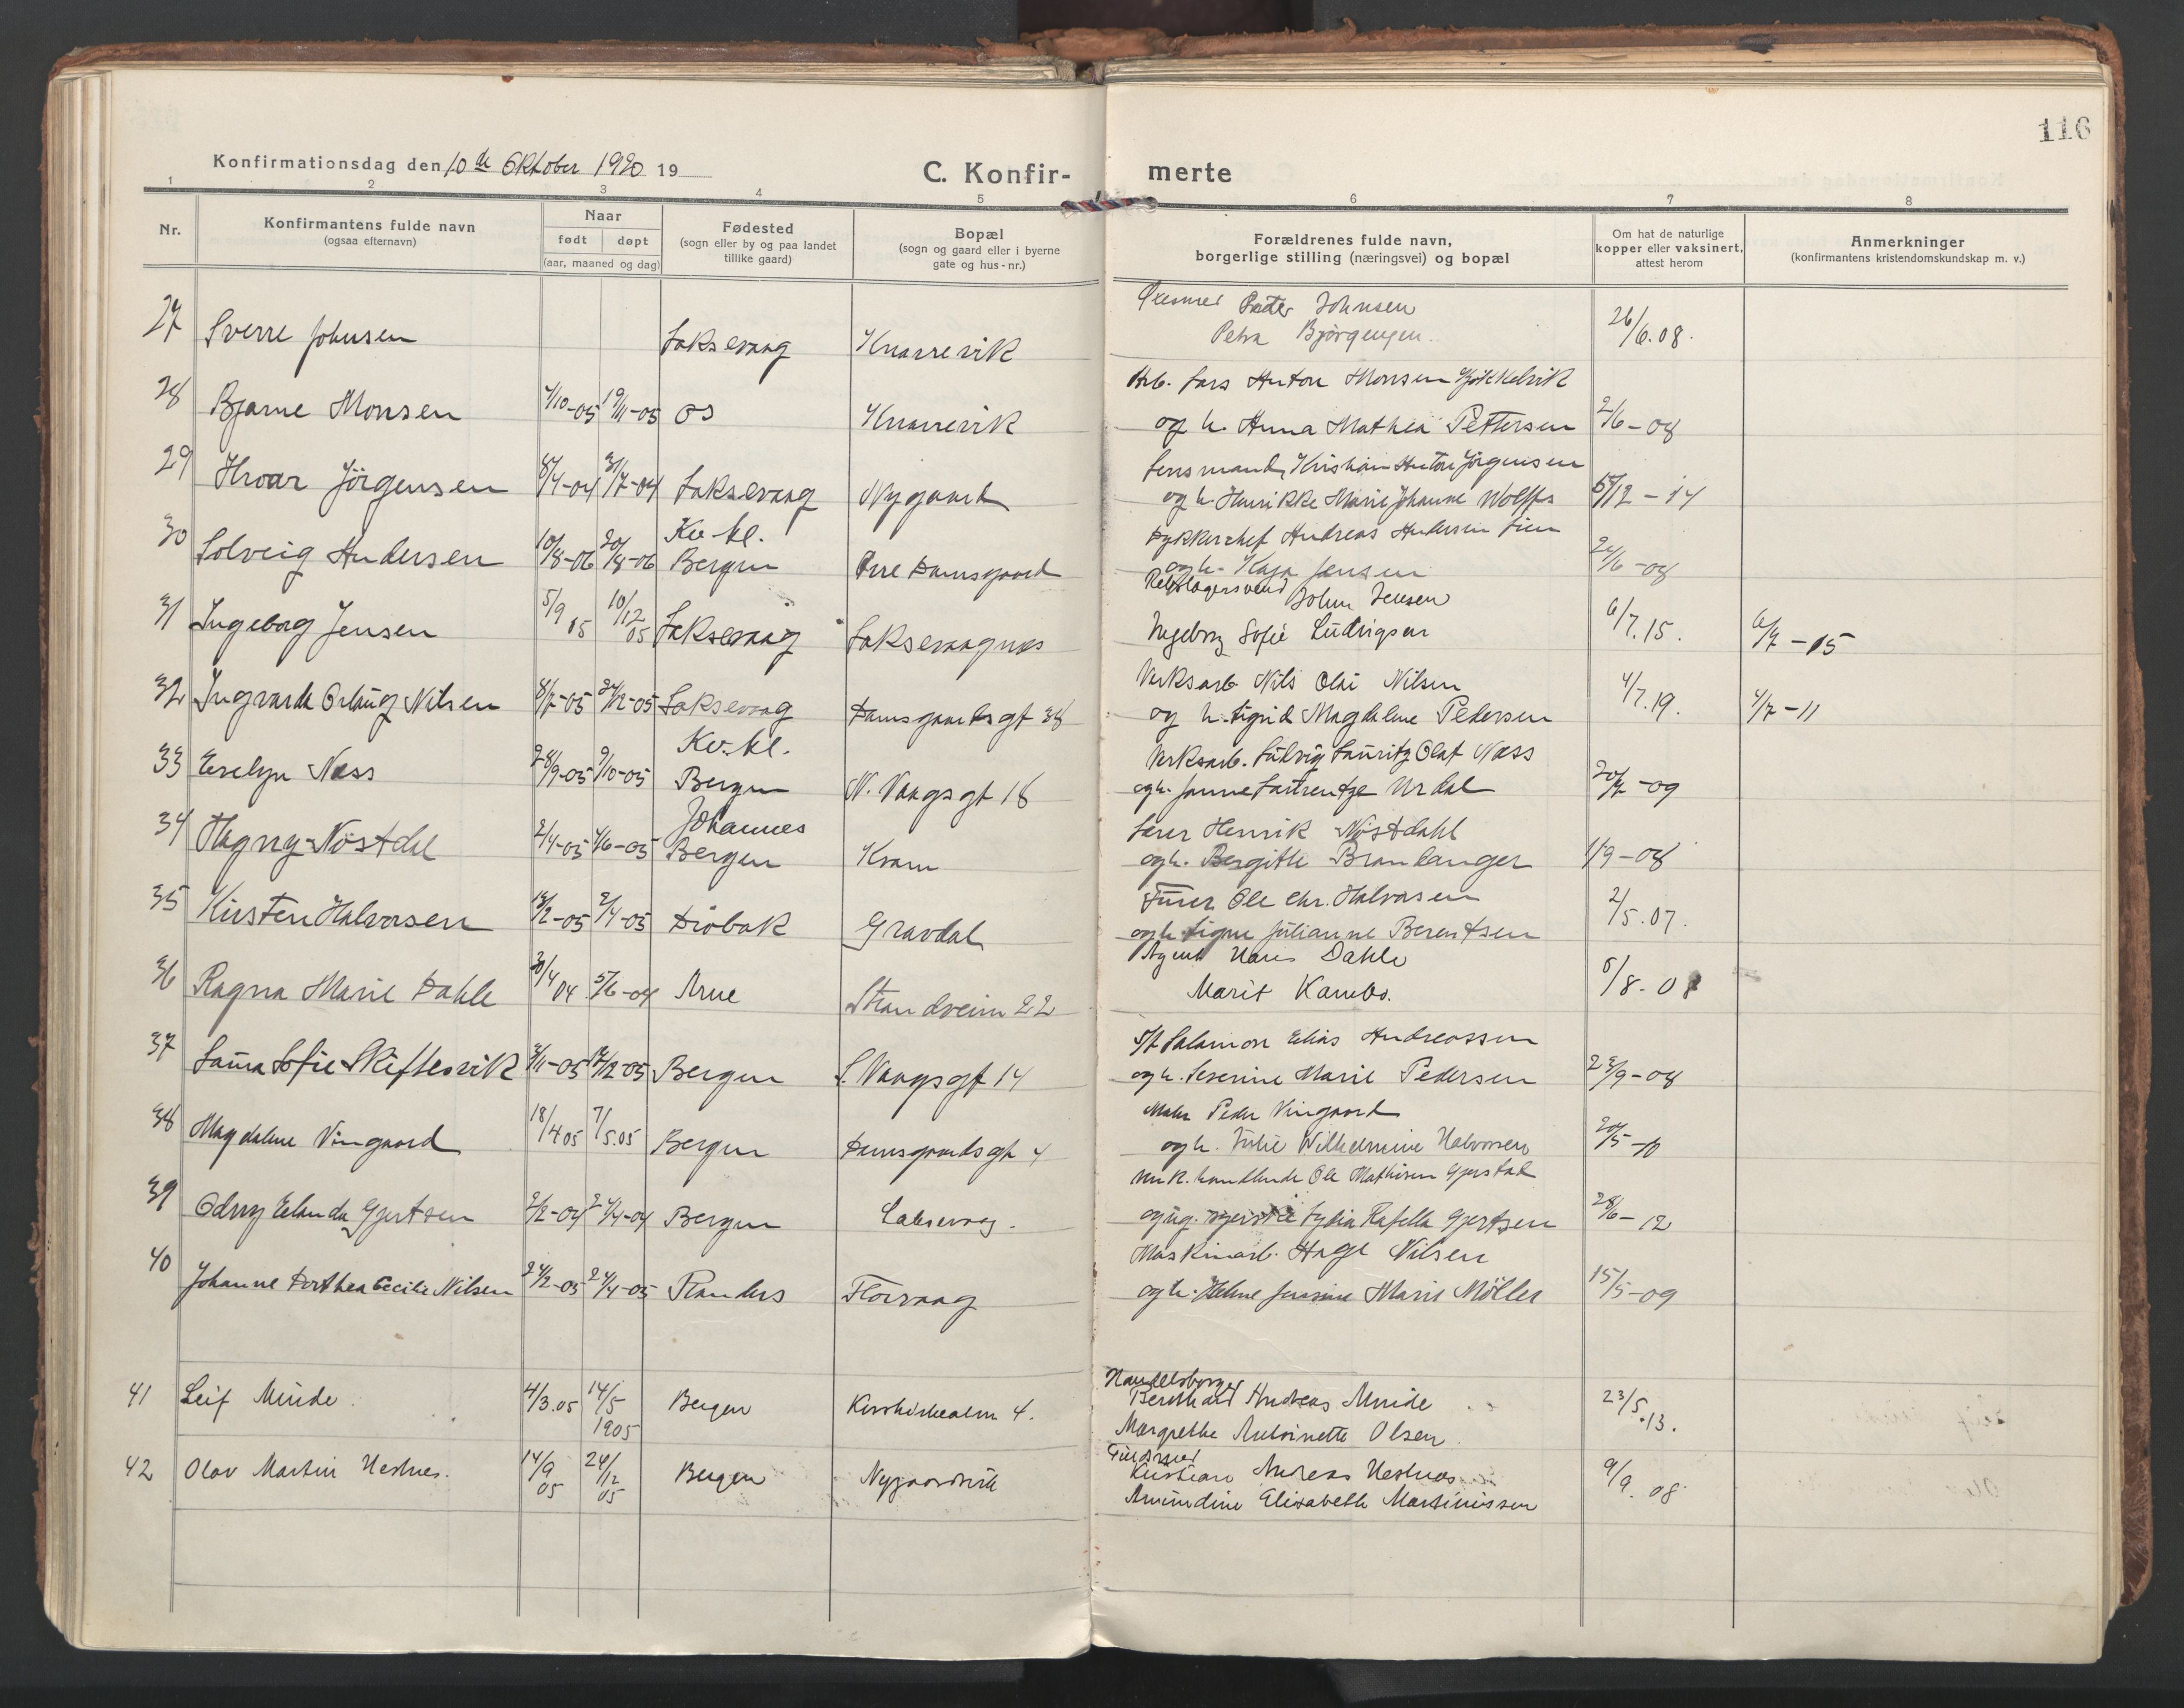 116
Konfirmationsdag den 10de Oktober 1920 19
C. Konfir-
merte
1 2 3 4 5 6 7 8
Nr.
Konfirmantens fulde navn
(ogsaa efternavn)
Naar
født døpt
(aar, maaned og dag)
Fødested
(sogn eller by og paa landet
tillike gaard)
Bopæl
(sogn og gaard eller i byerne
gate og hus-nr.)
Forældrenes fulde navn,
borgerlige stilling (næringsvei) og bopæl
Om hat de naturlige
kopper eller vaksinert,
attest herom
Anmerkninger
(konfirmantens kristendomskundskap m. v.)
Peter Johnsen
27 Sverre Johnsen Laksevaag Knarrevik Petra 26/6.08.
Arb. Lars Anton Monsen
28 Bjarne Monsen 19/11-05 Os Knarrevik og h. Anna Mathea Pettersen 2/6-08
Lensmand, Kristian Anton Jörgensen
29 Hroar Jörgensen 8/4-04 31/7-04 Laksevaag Nygaard og h. Henrikke Marie Johanne Wolffs 12-14
Kv.kl. Dykkerchef Andreas Andersen Lien
30 Solveig Andersen 10/8-06 20/8-06 Bergen Øvre Damsgaard og h. Kaja Jensen 24/6-08
Rebslagersvend John Jensen
31 Ingeborg Jensen 5/9 05 10/12 05 Laksevaag Laksevaagnes Ingeborg Sofie Ludvigsen 6/7.15. 6/7-15
Verksarb. Nils Olai Nilsen
32 Ingvarda Orlaug Nilsen 8/7-05 24/12-05 Laksevaag Damsgaardsgt 38 og h. Sigrid Magdalene Pedersen 4/7.19. 4/7-11
Kv.kl. Verksarb. Ludvig Lauritz Olaf Næss
33 Evelyn Næss 28/9-05 9/10-05 Bergen N. Vaagsgt 18 og h. Janne Laurentze Urdal 20/7-09
Johannes Lærer Henrik Nöstdahl
34 Magny Nöstdal 2/4-05 4/6-05 Bergen Kvam og h. Bergitte Branlanger 1/9-08
Ole Chr. Halvorsen
35 Kirsten Halvorsen 12/2-05 2/4-05 Dröbak Gravdal og h. Signe Julianne Berentsen 2/5.07.
Agent Hans Dahle
36 Ragna Marie Dahle 30/4 04 5/6-04 Arne Strandveien 22 Marit Kambo. 5/8-08
Salamon Elias Andreassen
37 Laura Sofie Skiftesvik 3/11-05 17/12-05 Bergen S. Vaagsgt 14 og h. Severine Marie Pedersen 23/9-08
Maler Peder Vingaard
38 Magdalene Vingaard 18/4 05 7/5.05 Bergen Damsgaardsgt 4 og h. Julie Wilhelmine Halvorsen 20/5-10
Unk. handlende Ole Mathisen Gjerstad
39 Odny Elanda Gjertsen 2/2-04 24/4-04 Bergen Laksevaag. og ug. Lydia Rafella Gjertsen 28/6-12
Maskinarb. Aage Nilsen
40 Johanne Dorthea Cecilie Nilsen 24/2-05 24/4-05 Randers Florvaag og h. Helene Jensine Marie Möller 15/5-09
Handelsborger
41 Leif Minde. 4/3.05 14/5 1905 Bergen Kirkholmen 4. Bernhard Andreas Minde 23/5.13.
Margrethe Antoinette Olsen.
42 Olav Martin Hestnes. 14/9 05 24/12 05 Bergen Nygaardsvik Kristian Andreas Hestnes 9/9.08
Amundine Elisabeth Martinussen